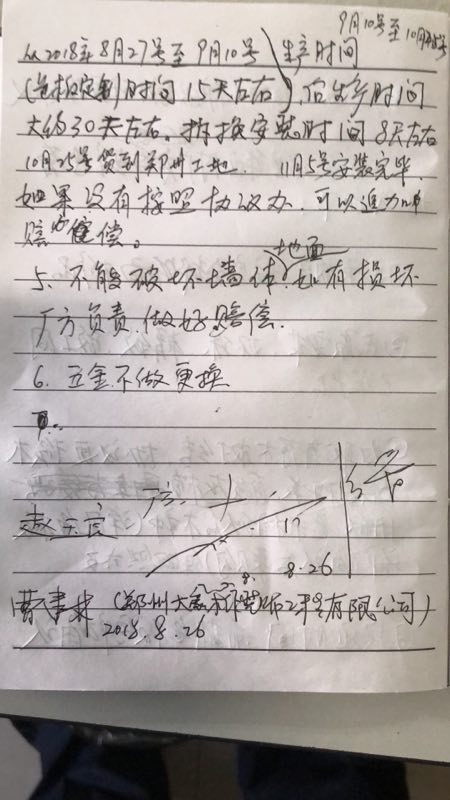 9月10号至10月25号
从2018年8月27号至9月10号 生产时间
(差板定制)时间15天左右),后生产时间
大约30天左右,拆换安装时间8天左右
10月25号货到郑州工地. 11月5号安装完毕.
如果没有按照协议办,可以追加
赔偿。
地面
5、不能破坏墙体.如有损坏
厂方负责.做好赔偿.
6、五金不做更换
8.26
(郑州大 装饰工程有限公司)
2018.8.26